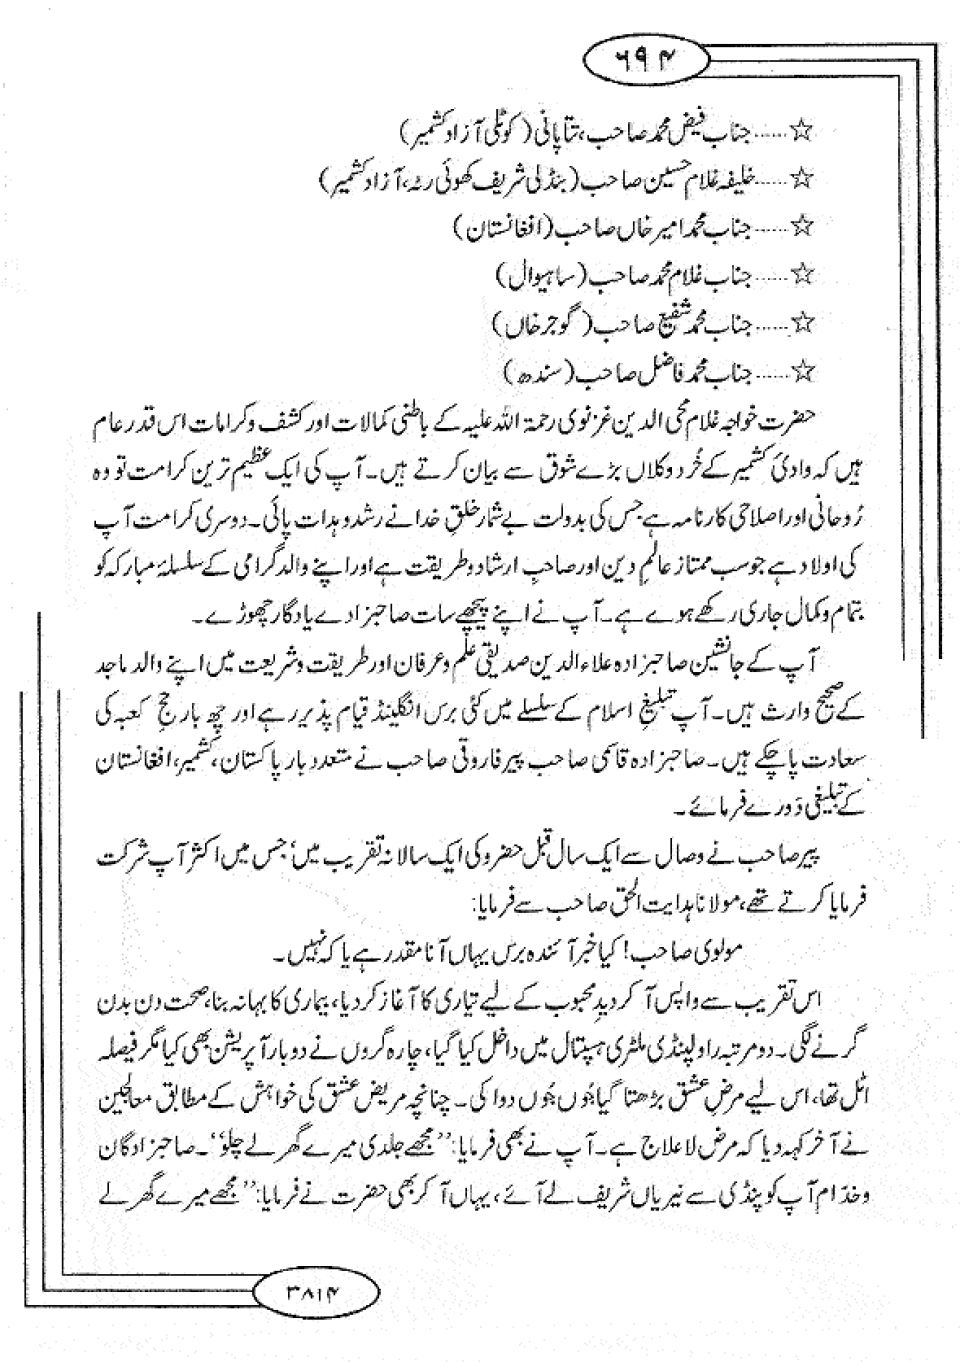 ۶۹۴
☆......جناب فیض محمد صاحب، تتا پانی (کوٹلی آزاد کشمیر)
☆......خلیفہ غلام حسین صاحب (بنڈلی شریف کھوئی رٹہ، آزاد کشمیر)
☆......جناب محمد امیر خاں صاحب (افغانستان)
☆......جناب غلام محمد صاحب (ساہیوال)
☆......جناب محمد شفیع صاحب (گوجر خاں)
☆......جناب محمد فاضل صاحب (سندھ)
حضرت خواجہ غلام محی الدین غزنوی رحمۃ اللہ علیہ کے باطنی کمالات اور کشف و کرامات اس قدر عام
ہیں کہ وادیٔ کشمیر کے خُرد و کلاں بڑے شوق سے بیان کرتے ہیں۔ آپ کی ایک عظیم ترین کرامت تو وہ
رُوحانی اور اصلاحی کارنامہ ہے جس کی بدولت بے شمار خلقِ خدا نے رشد و ہدات پائی۔ دوسری کرامت آپ
کی اولاد ہے جو سب ممتاز عالمِ دین اور صاحبِ ارشاد و طریقت ہے اور اپنے والد گرامی کے سلسلۂ مبارکہ کو
بتمام و کمال جاری رکھے ہوے ہے۔ آپ نے اپنے پیچھے سات صاحبزادے یادگار چھوڑے۔
آپ کے جانشین صاحبزادہ علاء الدین صدیقی علم و عرفان اور طریقت و شریعت میں اپنے والد ماجد
کے صحیح وارث ہیں۔ آپ تبلیغِ اسلام کے سلسلے میں کئی برس انگلینڈ قیام پذیر رہے اور چھ بار حجِ کعبہ کی
سعادت پا چکے ہیں۔ صاحبزادہ قاسمی صاحب پیر فاروقی صاحب نے متعدد بار پاکستان، کشمیر، افغانستان
کے تبلیغی دَورے فرمائے۔
پیر صاحب نے وصال سے ایک سال قبل حضرو کی ایک سالانہ تقریب میں' جس میں اکثر آپ شرکت
فرمایا کرتے تھے، مولانا ہدایت الحق صاحب سے فرمایا:
مولوی صاحب! کیا خبر آئندہ برس یہاں آنا مقدر ہے یا کہ نہیں۔
اس تقریب سے واپس آ کر دیدِ محبوب کے لیے تیاری کا آغاز کر دیا، بیماری کا بہانہ بنا، صحت دن بدن
گرنے لگی۔ دو مرتبہ راولپنڈی ملٹری ہسپتال میں داخل کیا گیا، چارہ گروں نے دو بار آپریشن بھی کیا مگر فیصلہ
اٹل تھا، اس لیے مرضِ عشق بڑھتا گیا جُوں جُوں دوا کی۔ چنانچہ مریض عشق کی خواہش کے مطابق معالجین
نے آخر کہہ دیا کہ مرض لا علاج ہے۔ آپ نے بھی فرمایا: ''مجھے جلدی میرے گھر لے چلو''۔ صاحبزادگان
و خدّام آپ کو پنڈی سے نیریاں شریف لے آئے، یہاں آ کر بھی حضرت نے فرمایا: ''مجھے میرے گھر لے
۳۸۱۴